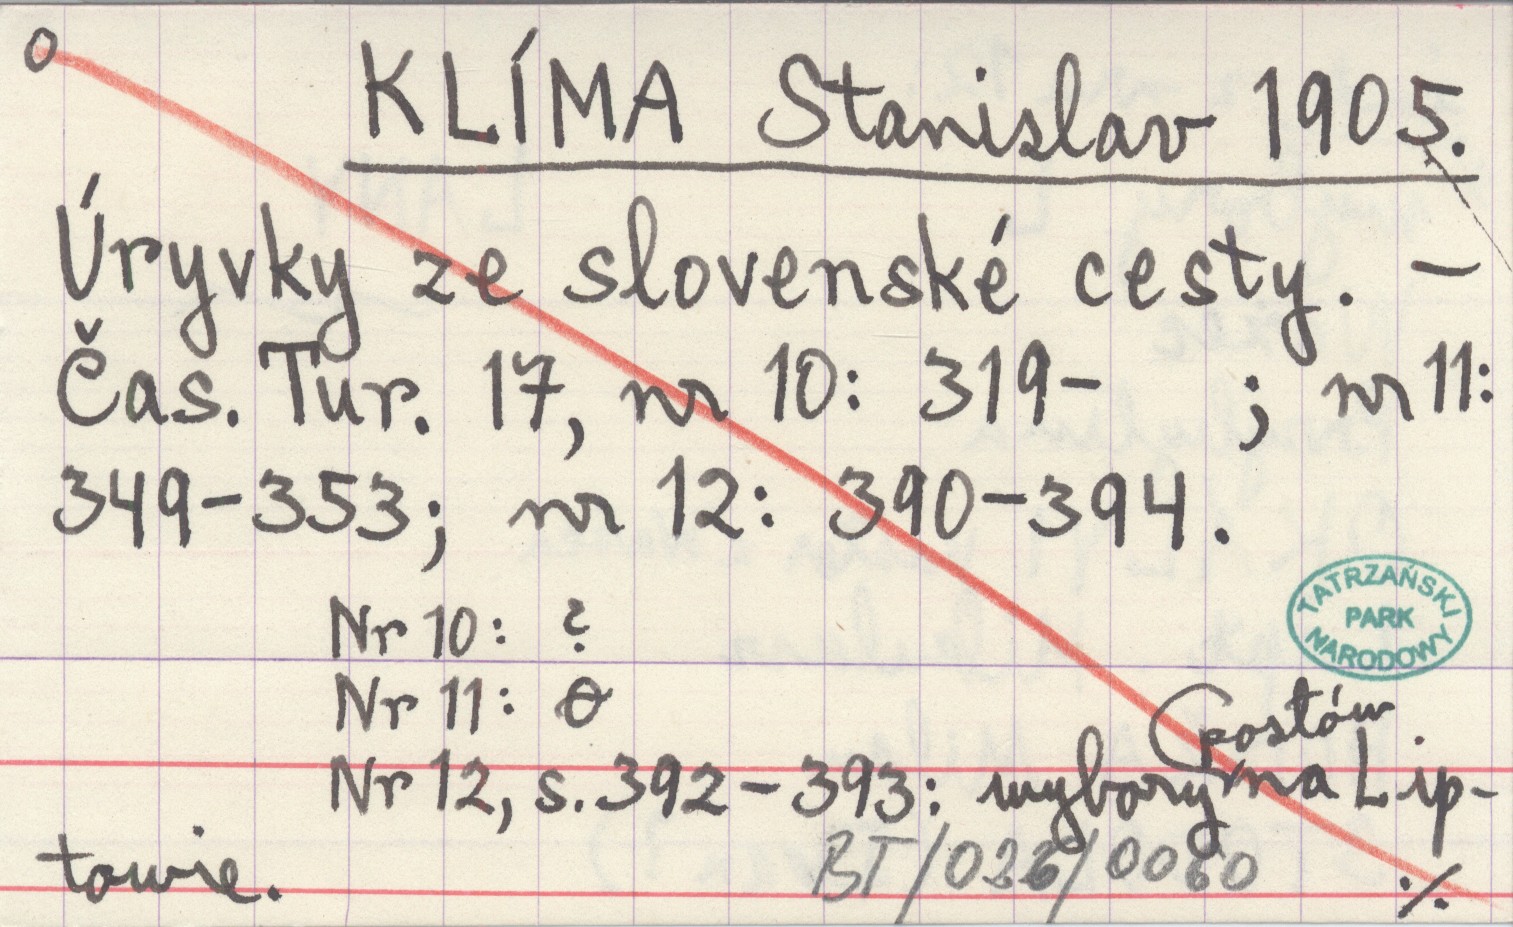 o
KLÍMA Stanislav 1905.
Úryvky ze slovenské cesty. –
Čas. Tur. 17, nr 10: 319–    ; nr 11:
349–353; nr 12: 390–394.
TATRZAŃSKI
PARK
NARODOWY
Nr 10: ?
Nr 11: 0
postów
Nr 12, s. 392–393: wybory na Lip-
towie.
BT/026/0060
./.